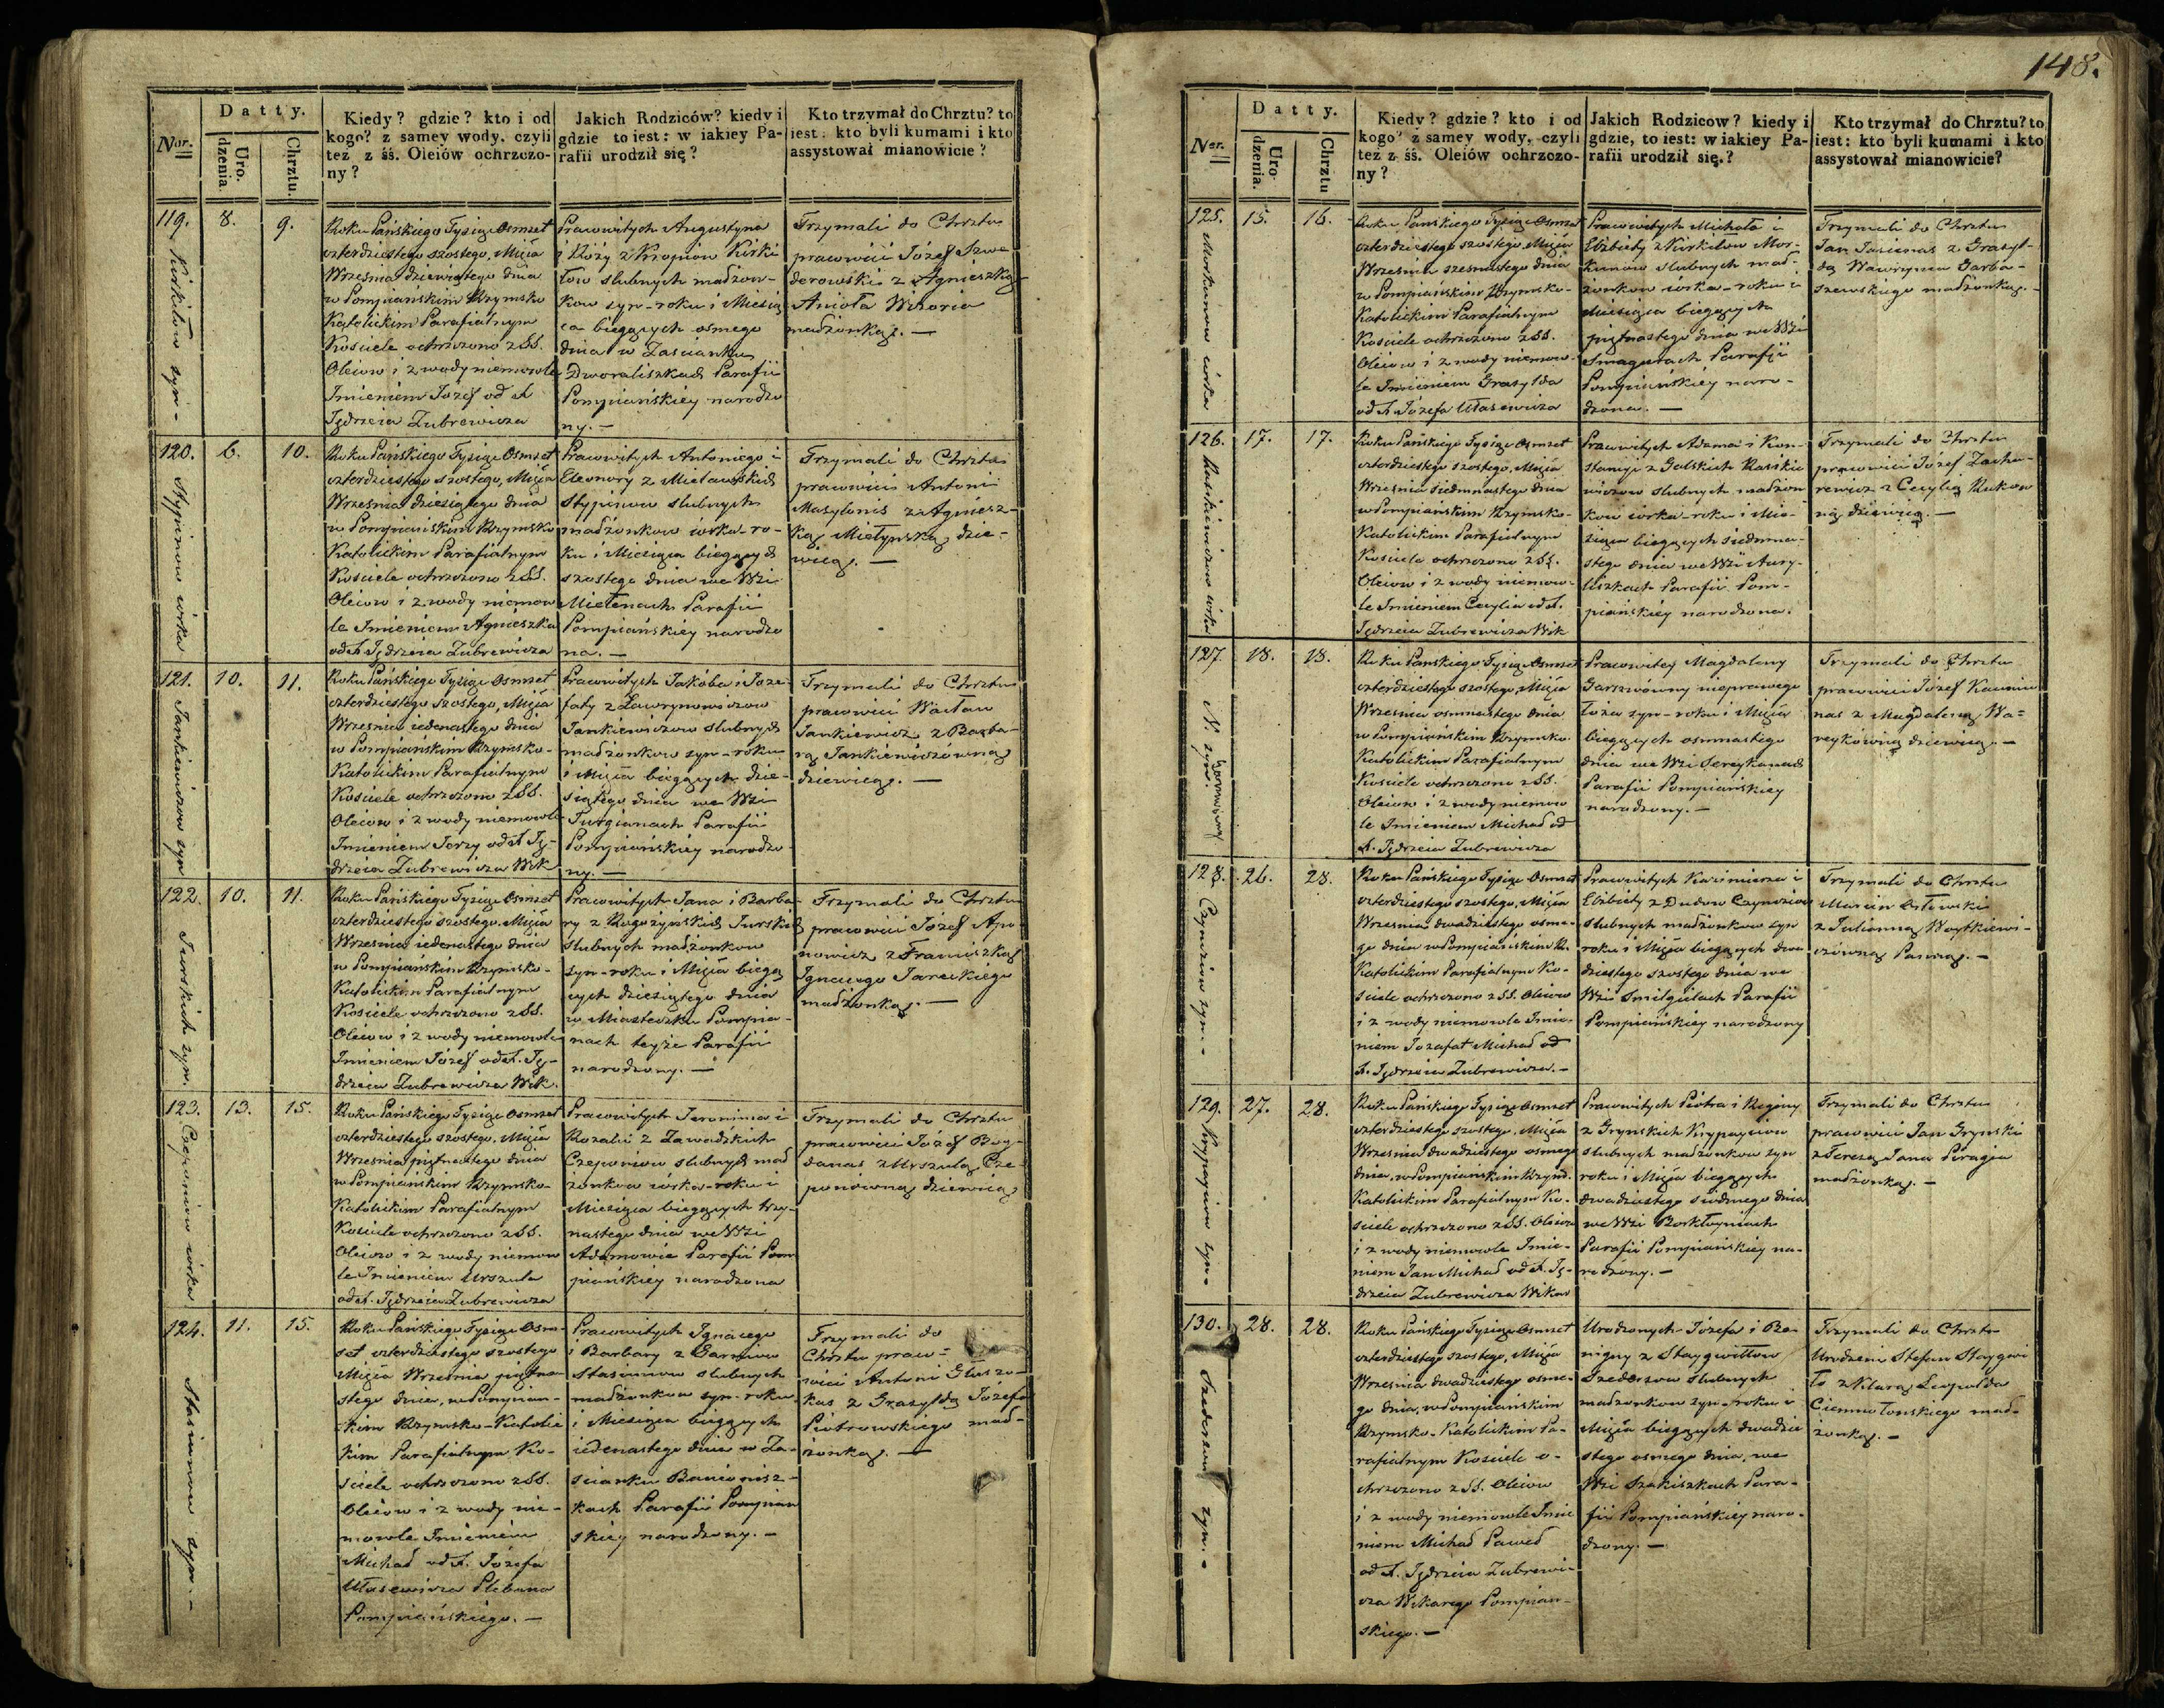 148.
Nor.
Datty.
Uro.
dzenia
Chrztu.
Kiedy? gdzie? kto i od
kogo? z samey wody, czyli
tez z śś. Oleiów ochrzczo-
ny?
Jakich Rodziców? kiedy i
gdzie to iest: w iakiey Pa-
rafii urodził się?
Kto trzymał do Chrztu? to
iest: kto byli kumami i kto
assystował mianowicie?
119.
Kirkiłow syn -
8.
9.
Roku Pańskiego Tysiąc Osmset
czterdziestego szostego, Miąca
Wrzesnia dziewiątego dnia
w Pompiańskim Rzymsko
Katolickim Parafialnym
Kosciele ochrzczono z SS.
Oleiow i z wody niemowle
Imieniem Jozef od X
Jędrzeia Zubrewicza
Prawowitych Augustyna
i Róży z Knopiow Kirki
łow slubnych małżon-
kow syn - roku i Miesią
ca biegących osmego
dnia w Zascianku
Dworaliszkach Parafii
Pompiańskiey narodzo
ny. —
Trzymali do Chrztu
pracowici Józef Szwe
derowski z Agnieszką
Anioła
małżonką. —
120.
Stypinow córka
6.
10.
Roku Pańskiego Tysiąc Osmset
czterdziestego szostego, Miąca
Wrzesnia dziesiątego dnia
w Pompiańskim Rzymsko
Katolickim Parafialnym
Kosciele ochrzczono z SS.
Oleiow i z wody niemow
le Imieniem Agnieszka
od X Jędrzeia Zubrewicza
Pracowitych Antoniego i
Eleonory z Mieławskich
Stypinow slubnych
małżonkow córka - ro-
ku i Miesiąca biegących
szostego dnia we Wsi
Mietenach Parafii
Pompiańskiey narodzo
na. —
Trzymali do Chrztu
pracowici Antoni
Masylonis z Agniesz-
ką Mietynską dzie-
wicą. —
121.
Jankiewiczow syn
10.
11.
Roku Pańskiego Tysiąc Osmset
czterdziestego szostego, Miąca
Wrzesnia iedenastego dnia
w Pompiańskim Rzymsko-
Katolickim Parafialnym
Kosciele ochrzczono z SS.
Oleiow i z wody niemowle
Imieniem Jerzy od X Ję-
drzeia Zubrewicza Wik
Pracowitych Jakóba i Joze-
faty z Ławrynowiczow
Jankiewiczow slubnych
małżonkow syn - roku
i Miąca biegących dzie-
siątego dnia we Wsi
Turgianach Parafii
Pompiańskiey narodzo
ny. —
Trzymali do Chrztu
pracowici Wacław
Jankiewicz z Barba-
rą Jankiewiczówną
dziewicą. —
122.
Jurskich syn.
10.
11.
Roku Pańskiego Tysiąc Osmset
czterdziestego szostego, Miąca
Wrzesnia iedenastego dnia
w Pompiańskim Rzymsko-
Katolickim Parafialnym
Kosciele ochrzczono z SS.
Oleiow i z wody niemowle
Imieniem Józef od X. Ję-
drzeia Zubrewicza Wik.
Pracowitych Jana i Barba-
ry z Rogożyńskich Jurskich
slubnych małżonkow
syn - roku i Miąca biegą
cych dziesiątego dnia
w Miasteczku Pompia-
nach teyże Parafii
narodzony. —
Trzymali do Chrztu
pracowici Józef Apo
nowicz z Franciszką
Ignacego Jareckiego
małżonką. —
123.
Czeponiow córka
13.
15.
Roku Pańskiego Tysiąc Osmset
czterdziestego szostego, Miąca
Wrzesnia piętnastego dnia
w Pompiańskim Rzymsko-
Katolickim Parafialnym
Kosciele ochrzczono z SS.
Oleiow i z wody niemow
le Imieniem Urszula
od X. Jędrzeia Zubrewicza
Pracowitych Jeronima i
Rozalii z Zawadzkich
Czeponiow slubnych mał
żonkow córka - roku i
Miesiąca biegących trzy-
nastego dnia we Wsi
Adamowie Parafii Pom
piańskiey narodzona
Trzymali do Chrztu
pracowici Józef Bog-
danas z Urszulą Cze-
ponówną dziewicą
124.
Stasiunow syn. -
11.
15.
Roku Pańskiego Tysiąc Osm-
set czterdziestego szostego
Miąca Wrzesnia piętna-
stego dnia, w Pompian-
skim Rzymsko-Katolic
kim Parafialnym Ko-
sciele ochrzczono z SS.
Oleiow i z wody nie-
mowle Imieniem
Michał od X. Józefa
Ułasewicza Plebana
Pompiańskiego. —
Pracowitych Ignacego
i Barbary z Garniow
Stasiunow slubnych
małżonkow syn - roku
i Miesiąca biegących
iedenastego dnia w Za-
scianku Bacionisz-
kach Parafii Pompian
skiey narodzony. —
Trzymali do
Chrztu praco-
wici Antoni Głuszo-
kas z Grasyldą Józefa
Piotrowskiego mał-
żonką. —
Ner.
Datty.
Uro-
dzenia.
Chrztu
Kiedy? gdzie? kto i od
kogo? z samey wody, czyli
tez z śś. Oleiów ochrzczo-
ny?
Jakich Rodzicow? kiedy i
gdzie, to iest: w iakiey Pa-
rafii urodził się.?
Kto trzymał do Chrztu? to
iest: kto byli kumami i kto
assystował mianowicie?
125.
Morkunow córka
15.
16.
Roku Pańskiego Tysiąc Osmset
czterdziestego szostego Miąca
Wrzesnia szesnastego dnia
w Pompiańskim Rzymsko-
Katolickim Parafialnym
Kosciele ochrzczono z SS.
Oleiow i z wody niemow-
le Imieniem Grasylda
od X. Józefa Ułasewicza
Prawowitych Michała i
Elżbiety z Kirkiłow Mor-
kunow slubnych mał-
żonkow córka - roku i
Miesiąca biegących
piętnastego dnia we Wsi
Smagurach Parafii
Pompiańskiey naro-
dzona. —
Trzymali do Chrztu
Jan Jasienas z Grasyl-
dą Wawrzynca Garba-
szewskiego małżonką. -
126.
córka
17.
17.
Roku Pańskiego Tysiąc Osmset
czterdziestego szostego, Miąca
Wrzesnia siedmnastego dnia
w Pompiańskim Rzymsko-
Katolickim Parafialnym
Kosciele ochrzczono z SS.
Oleiow i z wody niemow-
le Imieniem Cecylia od X.
Jędrzeia Zubrewicza Wik
Pracowitych Adama i Kon-
stancyi z Galskich Rasikie
wiczow slubnych małżon
kow córka - roku i Mie-
siąca biegących siedmna-
stego dnia we Wsi Auży-
liszkach Parafii Pom-
piańskiey narodzona.
Trzymali do Chrztu
pracowici Józef Zacha-
rewicz z Cecylią Rukow
ną dziewicą. —
127.
N. syn.
18.
18.
Roku Pańskiego Tysiąc Osmset
czterdziestego szostego, Miąca
Wrzesnia osmnastego dnia
w Pompiańskim Rzymsko-
Katolickim Parafialnym
Kosciele ochrzczono z SS.
Oleiow i z wody niemow
le Imieniem Michał od
X. Jędrzeia Zubrewicza
Pracowitey Magdaleny
Garszwówny nieprawego
łoża syn - roku i Miąca
biegących osmnastego
dnia we Wsi Sereykanach
Parafii Pompiańskiey
narodzony. —
Trzymali do Chrztu
pracowici Józef Kaunie
nas z Magdaleną Wa-
reykówną dziewicą. —
128.
Czyndziow syn. -
26.
28.
Roku Pańskiego Tysiąc Osmset
czterdziestego szostego, Miąca
Wrzesnia dwudziestego osme-
go dnia w Pompiańskim R.
Katolickim Parafialnym Ko-
sciele ochrzczono z SS. Oleiow
i z wody niemowle Imie-
niem Jozafat Michał od
X. Jędrzeia Zubrewicza. —
Pracowitych Kazimierza i
Elżbiety z Dudow Czyndziow
slubnych małżonkow syn
roku i Miąca biegących dwu
dziestego szostego dnia we
Wsi Smilgielach Parafii
Pompiańskiey narodzony
Trzymali do Chrztu
Marcin
z Julianną Woytkiewi-
czówną Panną. —
129.
Krypaysiow syn -
27.
28.
Roku Pańskiego Tysiąc Osmset
czterdziestego szostego, Miąca
Wrzesnia dwudziestego osmego
dnia, w Pompiańskim Rzyms.
Katolickim Parafialnym Ko-
sciele ochrzczono z SS. Oleiow
i z wody niemowle Imie-
niem Jan Michał od X. Ję-
drzeia Zubrewicza Wikar
Pracowitych Piotra i Reginy
z Grynskich Krypaysiow
slubnych małżonkow syn
roku i Miąca biegących
dwudziestego siodmego dnia
we Wsi Borkłoyniach
Parafii Pompiańskiey na-
rodzony. —
Trzymali do Chrztu
pracowici Jan Grynski
z Teresą Jana Peragia
małżonką. —
130.
Szedersow syn. -
28.
28.
Roku Pańskiego Tysiąc Osmset
czterdziestego szostego, Miąca
Wrzesnia dwudziestego osme-
go dnia, w Pompiańskim
Rzymsko-Katolickim Pa-
rafialnym Kosciele o-
chrzczono z SS. Oleiow
i z wody niemowle Imie
niem Michał Paweł
od X. Jędrzeia Zubrewi-
cza Wikarego Pompian-
skiego. —
Urodzonych Józefa i Be-
nigny z Staygwiłłow
Szedersow slubnych
małżonkow syn - roku i
Miąca biegących dwudzie
stego osmego dnia, we
Wsi Szakiszkach Para-
fii Pompiańskiey naro-
dzony. —
Trzymali do Chrztu
Urodzeni Stefan Staygwi
łło z Klarą Leopolda
Ciemnołonskiego mał-
żonką. —